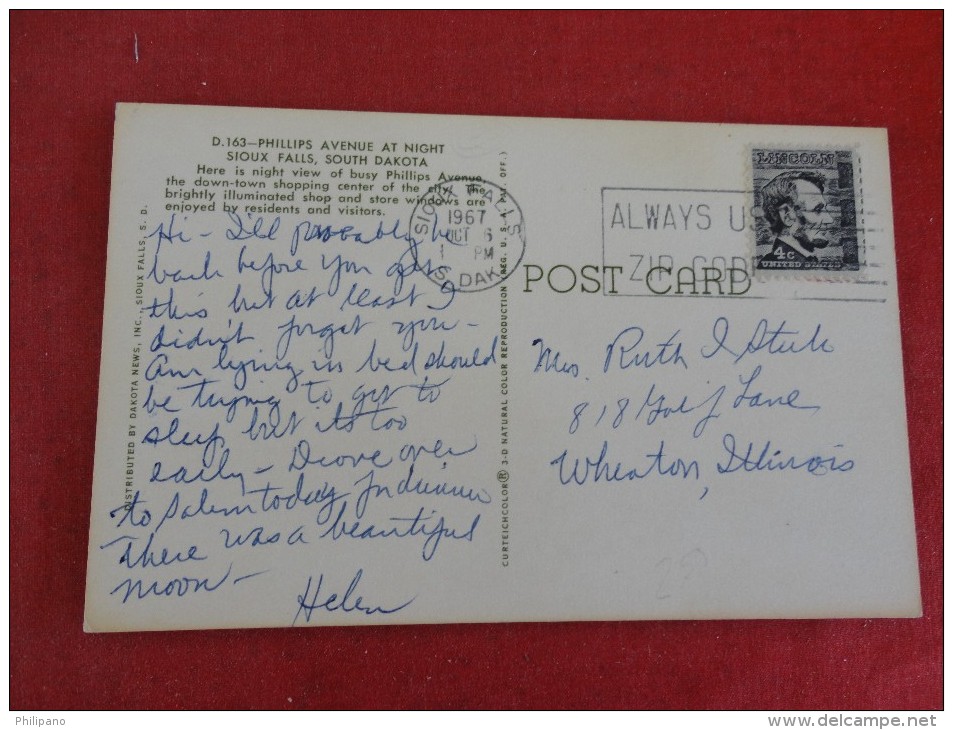 D.163—PHILLIPS AVENUE AT NIGHT
SIOUX FALLS, SOUTH DAKOTA
Here is night view of busy Phillips Avenue,
the down-town shopping center of the city. The
brightly illuminated shop and store windows are
enjoyed by residents and visitors.
Hi - I'll probably be
back before you get
this but at least I
didn't forget you -
Am lying in bed should
be trying to get to
sleep but its too
early - Drove over
to Salem today for dinner
There was a beautiful
moon -
Helen
DISTRIBUTED BY DAKOTA NEWS, INC., SIOUX FALLS, S. D.
CURTEICHCOLOR® 3-D NATURAL COLOR REPRODUCTION (REG. U. S. A. PAT. OFF.)
SIOUX FALLS
1967
OCT 6
PM
S. DAK.
ALWAYS US
ZIP COD
LINCOLN
4c
UNITED STATES
POST CARD
Mrs. Ruth I
818 Golf Lane
Wheaton, Illinois
Philipano
www.delcampe.net